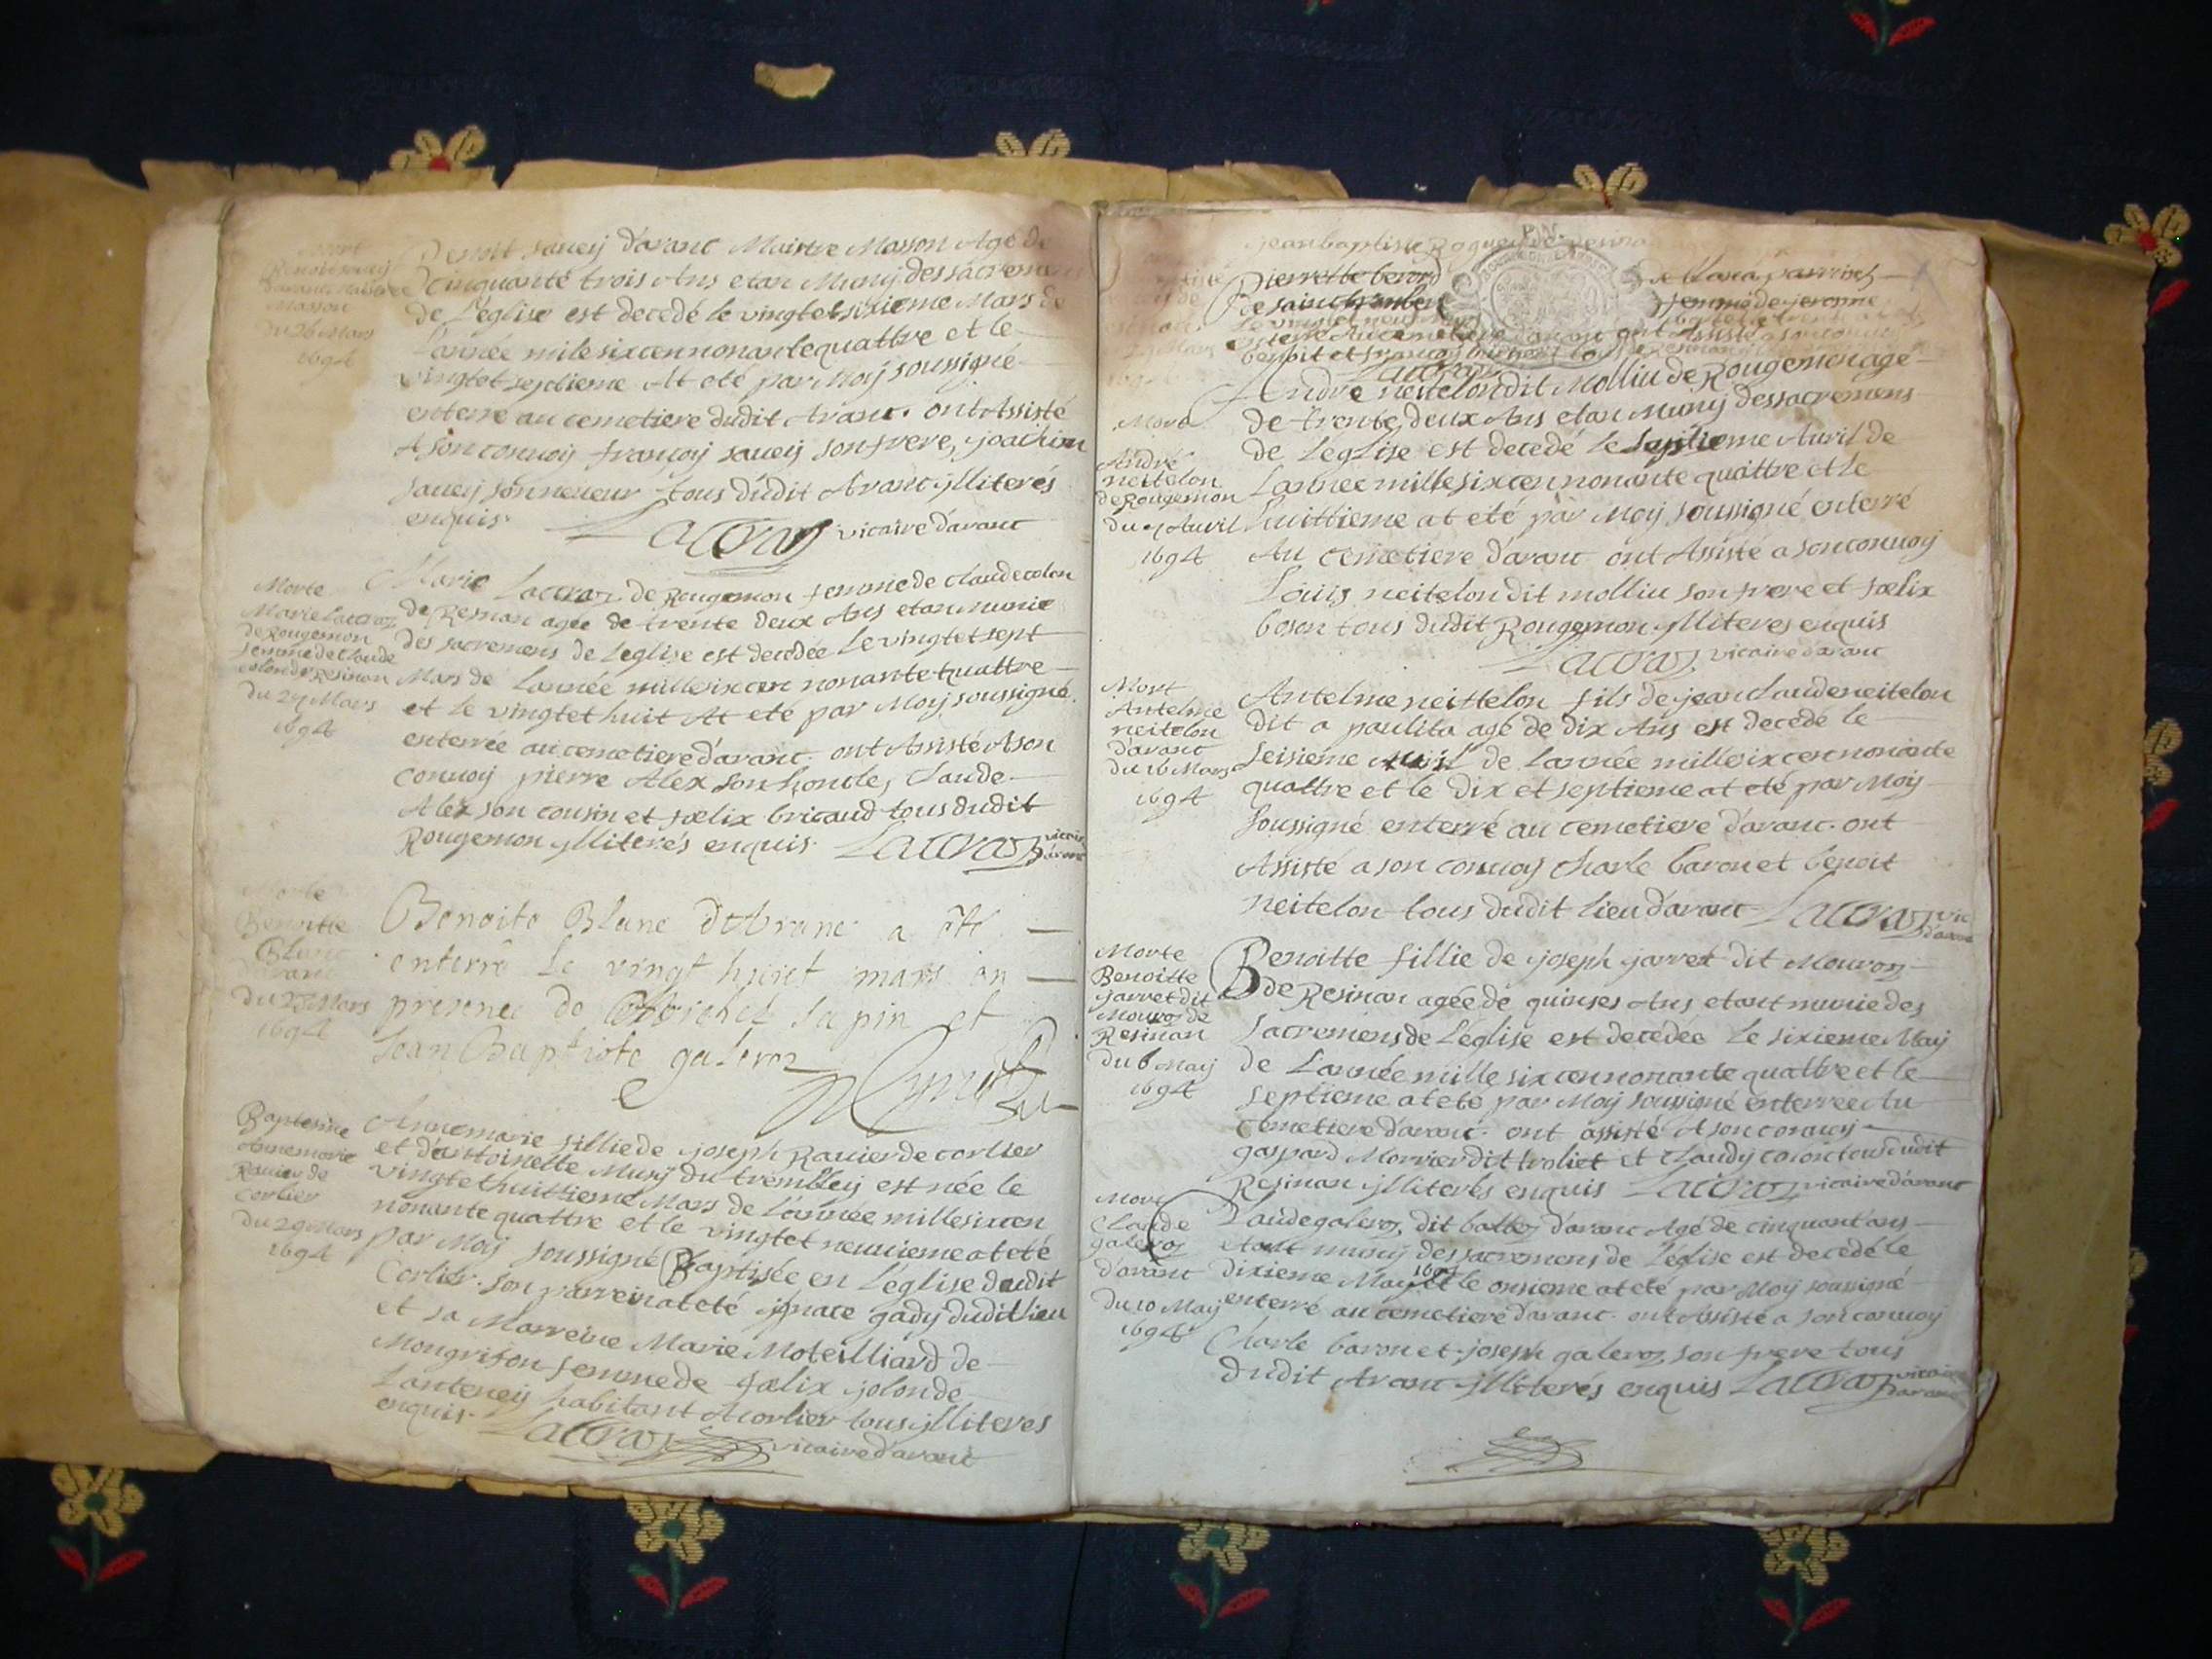 Mort
Benoit sauey
Masson
du 26 Mars
1694
Benoit sauey d'aranc Maistre Masson Agé de
Cinquante trois Ans etan Muny des sacremens
de L'eglise est decedé le vingtetsixieme Mars de
L'année mile sixcennonantequattre et le
vingtetseptieme At eté par Moy soussigné
enterre au cemetiere dudit Aranc. ont Assisté
A son conuoy francoy sauey son frere, joachim
sauey son neueur tous dudit Aranc jlliterés
enquis. Lacroz vicaire d'aranc
Morte
Marie Lacroz
de Rougemon
femme de Claude
colon de Resinan
du 27 Mars
1694
Marie Lacroz de Rougemon femme de Claude colon
de Resinan agée de trente deux Ans etan munie
des sacremens de Leglise est decedée Le vingtetsept
Mars de Lannée millesixcen nonante quattre
et le vingtethuit At eté par Moy soussigné
enterrée au cemetiere d'aranc. ont Assisté A son
conuoy pierre Alex son honcle, Claude
Alex son cousin et fœlix bricaud tous dudit
Rougemon jlliterés enquis. Lacroz vicaire d'aranc
Morte
Benoitte
Blanc
d'aranc
du 28 Mars
1694
Benoite Blanc d'Aranc a été
enterré Le vingt huict mars en
presence de Michel Sapin et
Jean Baptiste galeroz
Baptesme
Annemarie
Rauier de
Corlier
du 29 Mars
1694
Annemarie fillie de joseph Rauier de corlier
et d'antoinette Musy du trembley est née le
vingtethuittieme Mars de L'année millesixcen
nonante quattre et le vingtet neuuieme at eté
par Moy soussigné Baptisée en L'église dudit
Corlier. son parrein at eté jgnace gady dudit lieu
et sa Marreine Marie Moteilliard de
Mongrifon femme de fœlix jolon de
Lanteney habitant A corlier tous jlliteres
enquis. Lacroz vicaire d'aranc
jean baptiste
Pierrette
femme de jeronme
benoit et francoy
Lacroz
Mort
André
neitelon
de Rougemon
du 7 Auril
1694
André neitelon dit Molliu de Rougemon agé
de trente deux Ans etan Muny des sacremens
de Leglise est decedé le septieme Auril de
Lannee mille sixcen nonante quattre et le
huittieme at eté par Moy soussigné enterré
Au cemetiere d'aranc ont Assisté a son conuoy
Louis neitelon dit molliu son frere et fœlix
boson tous dudit Rougemon jlliteres enquis
Lacroz vicaire d'aranc
Mort
Antelme
neitelon
d'aranc
du 16 Mars
1694
Antelme neittelon fils de jean claude neitelon
dit a paulita agé de dix Ans est decedé le
seisieme Auril de Lannée millesixcennonante
quattre et le dix et septieme at eté par Moy
soussigné enterré au cemetiere d'aranc. ont
Assisté a son conuoy Charle baron et benoit
neitelon tous dudit lieu d'aranc Lacroz vic d'aranc
Morte
Benoitte
jarret dit
Mouroz de
Resinan
du 6 May
1694
Benoitte fillie de joseph jarret dit Mouroz
de Resinan agée de quinses Ans etant munie des
sacremens de L'église est decédée Le sixieme May
de Lannée mille six cennonante quattre et le
septieme at eté par Moy soussigné enterrée Au
Cemetiere d'aranc. ont assisté A son conuoy
gaspard Morrier dit troliet et Claudy dudit
Resinan jlliterés enquis Lacroz vicaire d'aranc
Mort
Claude
galeroz
d'aranc
du 10 May
1694
Claude galeroz dit ballez d'aranc Agé de cinquant ans
etant muny des sacremens de L'église est decedé le
dixieme May 1694 et le onsieme at eté par Moy soussigné
enterré au cemetiere d'aranc. ont Assisté a son conuoy
Charle baron et joseph galeroz son frere tous
dudit Aranc jlliterés enquis Lacroz vicaire d'aranc